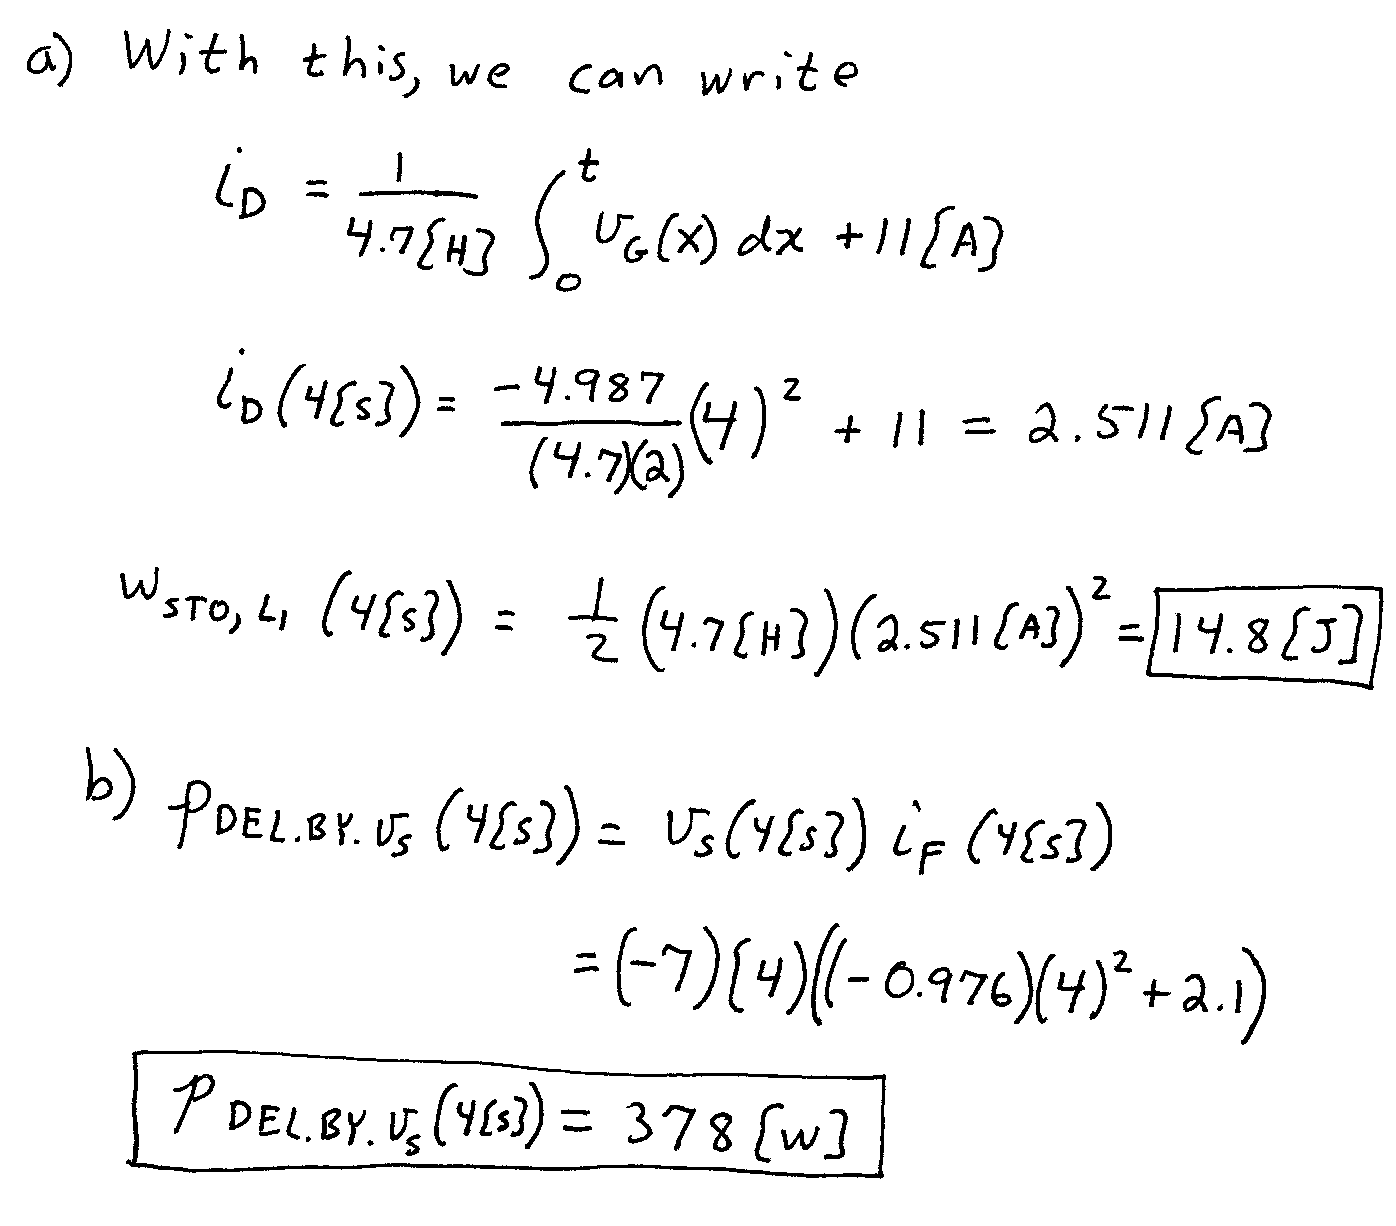 a) With this, we can write
i_D = 1/4.7[H] ∫_0^t v_G(x) dx + 11[A]
i_D(4[s]) = -4.987/(4.7)(2) (4)^2 + 11 = 2.511[A]
W_STO,L1 (4[s]) = 1/2 (4.7[H])(2.511[A])^2 = 14.8[J]
b) p_DEL.BY.v_s (4[s]) = v_s(4[s]) i_F (4[s])
= (-7)(4)((-0.976)(4)^2 + 2.1)
p_DEL.BY.v_s (4[s]) = 378[W]